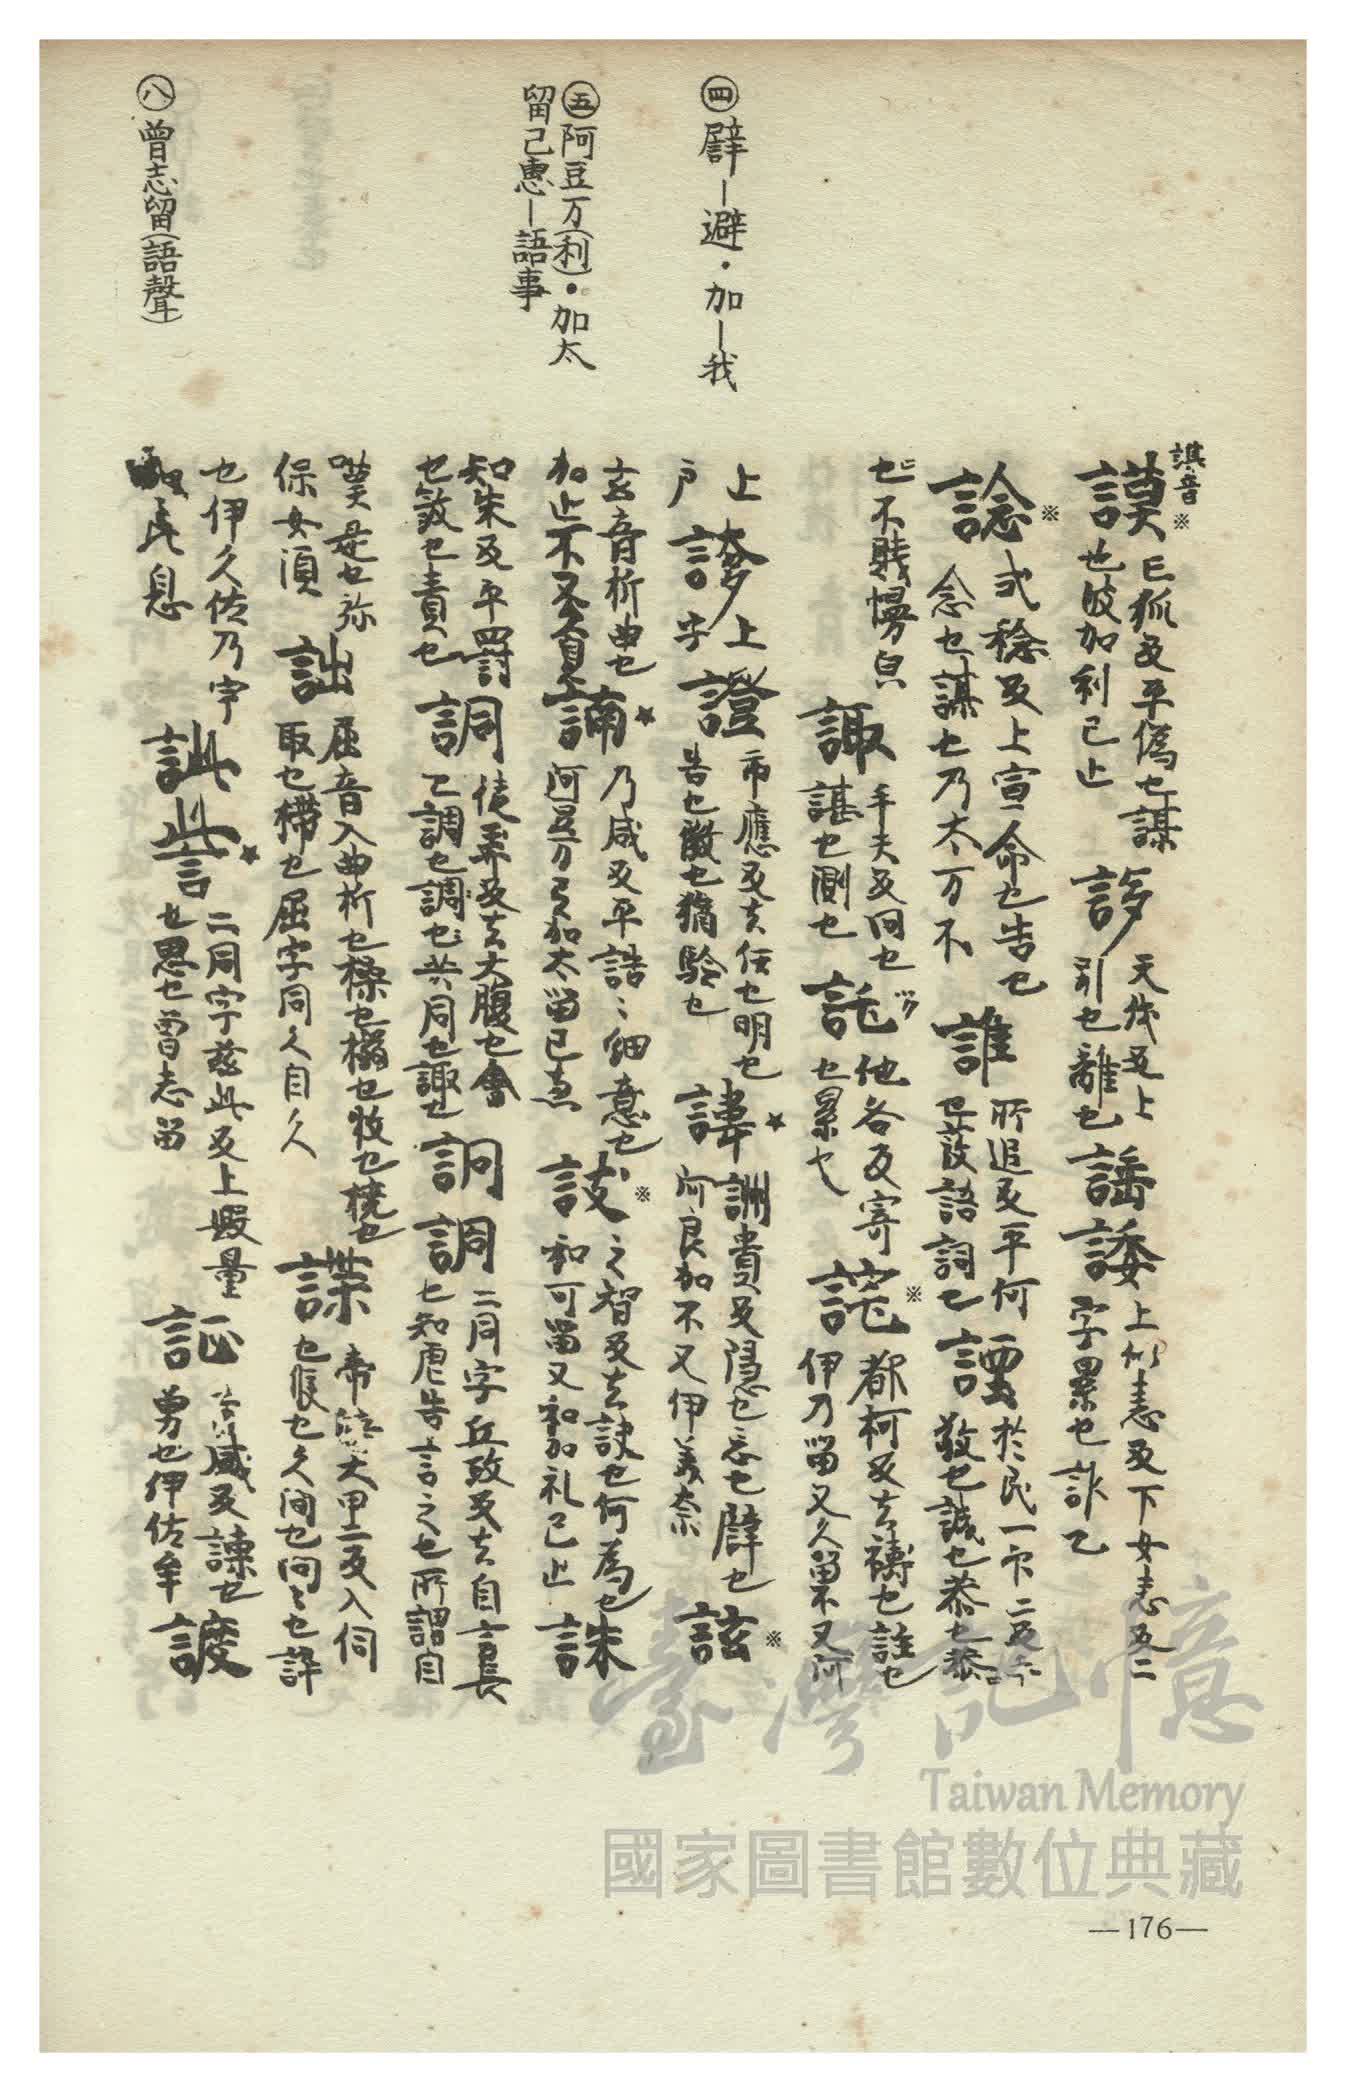 ㊃ 辟—避・加—我
㊄ 阿豆万(利)・加太
留己惠—語事
㊇ 曾志留(語聲)
諆音
謨 亡狐反平偽也謀
也波加利己止
誃 天伐反上
引也離也
謡 諉 上以恚反下女恚反二
字累也詐也
諗 式稔反上宣命也告也
念也謀也乃太万不
誰 所追反平何
也發語詞也
敬也誠也恭也
也不賤慢皃
諏 手夫反問也
諶也測也
託 他各反寄
也累也
詫 都柯反去禱也誰也
伊乃留又久留不又阿
上 誃 上
户 字
證 市應反去任也明也
告也徵也猶驗也
諱 詶貴反隱也忘也辟也
阿良加不又伊美奈
詃
玄音析曲也
加止不又
諵 乃咸反平諳〻細意也
阿豆万己加太留己惠
詙 之智反去訣也何為也
和可留又和加礼己止
誅
知朱反平罰
也殺也責也
詷 徒弄反去大腹也會
又調也調也共同也諏也
詗 調 二同字丘政反去自言長
也知處告言之也所謂自
嘆是也弥
保女須
詘 屈音入曲折也
取也滯也屈字同久自久
諜 帝 大甲二反入伺
也候也久間也伺〻也評
也伊久佐乃宇
加比見
訿 訾 二同字茲此反上毀量
也思也曾志留
証 咸反諫也
勇也伊佐牟
謢
臺灣記憶
Taiwan Memory
國家圖書館數位典藏
—176—